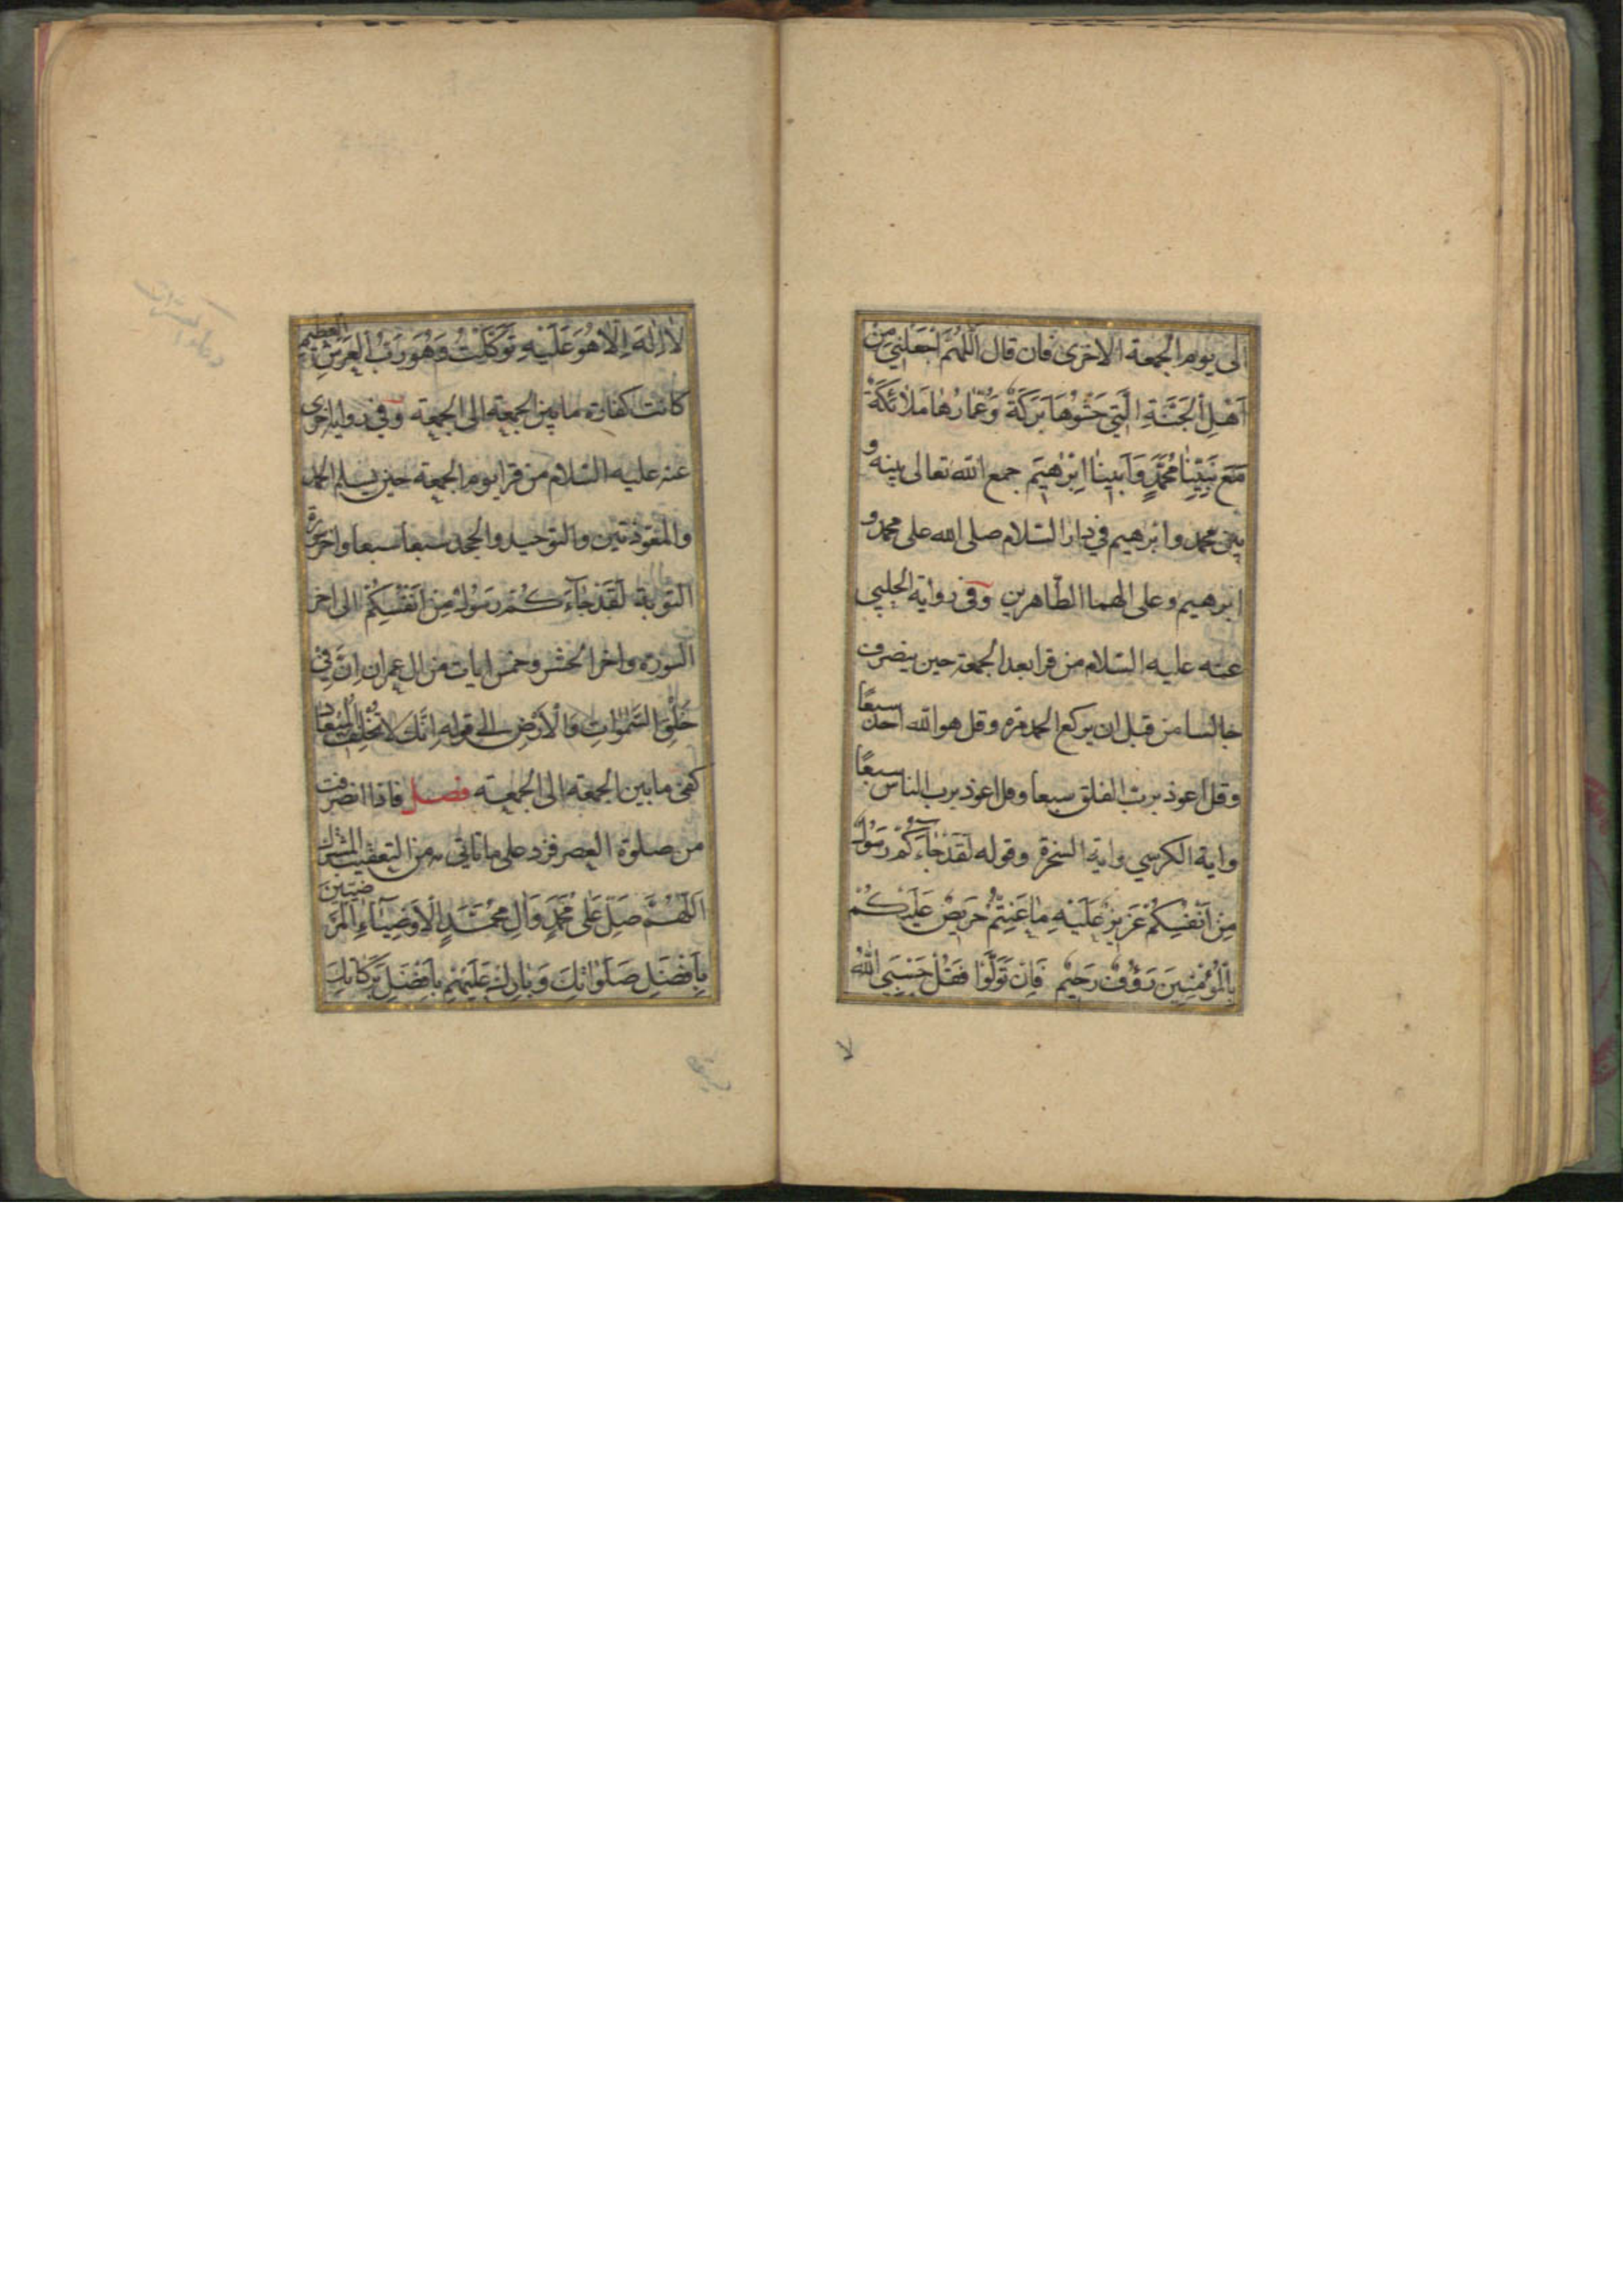 الی یوم الجمعة الاخری فان قال اَللّٰهُمَّ اجْعَلْنِی مِنْ
اَهْلِ الْجَنَّةِ الَّتِی حَشْوُهَا بَرَکَةٌ وَعُمّارُهٰا مَلاٰئِکَةٌ
مَعَ نَبِیِّنٰا مُحَمَّدٍ وَاَبینٰا اِبْرٰهیمَ جمع الله تعالی بینه و
بین محمد وابرهیم فی دار السّلام صلی الله علی محمد و
ابرهیم وعلی الهما الطّاهرین وفی روایة الحلبی
عنه علیه السّلام من قرا بعد الجمعة حین ینصرف
جالسا من قبل ان یرکع الحمد مرة وقل هو الله احد سبعًا
وقل اعوذ بربّ الفلق سبعا وقل اعوذ برب الناس سبعًا
وایة الکرسی وایة السخرة وقوله لَقَدْ جٰاءَکُمْ رَسُولٌ
مِنْ اَنْفُسِکُمْ عَزیزٌ عَلَیْهِ مٰا عَنِتُّمْ حَریصٌ عَلَیْکُمْ
بِالْمُؤْمِنینَ رَؤُفٌ رَحیمٌ فَاِنْ تَوَلَّوْا فَقُلْ حَسْبِیَ اللّٰهُ
لا
لاٰ اِلٰهَ اِلّاٰ هُوَ عَلَیْهِ تَوَکَّلْتُ وَهُوَ رَبُّ الْعَرْشِ الْعَظیمِ
کانت کفارة ما بین الجمعة الی الجمعة وفی روایة اخری
عنه علیه السّلام من قرا یوم الجمعة حین یسلم الحمد
والمعوّذتین والتوحید والجحد سبعا سبعا واخر سورة
التوبة لَقَدْ جٰاءَکُمْ رَسُولٌ مِنْ اَنْفُسِکُمْ الی اخر
السورة واخر الحشر وخمس ایات من ال عمران اِنَّ فِی
خَلْقِ السَّمٰوٰاتِ وَالْاَرْضِ الی قوله اِنَّکَ لاٰ تُخْلِفُ الْمیعٰادَ
کفی ما بین الجمعة الی الجمعة فصل فاذا انصرفت
من صلوة العصر فزد علی ما یاتی من التعقیب المشترک
اَللّٰهُمَّ صَلِّ عَلٰی مُحَمَّدٍ وَاٰلِ مُحَمَّدٍ الْاَوْصِیٰاءِ الْمَرْضِیّینَ
بِاَفْضَلِ صَلَوٰاتِکَ وَبٰارِکْ عَلَیْهِمْ بِاَفْضَلِ بَرَکٰاتِکَ